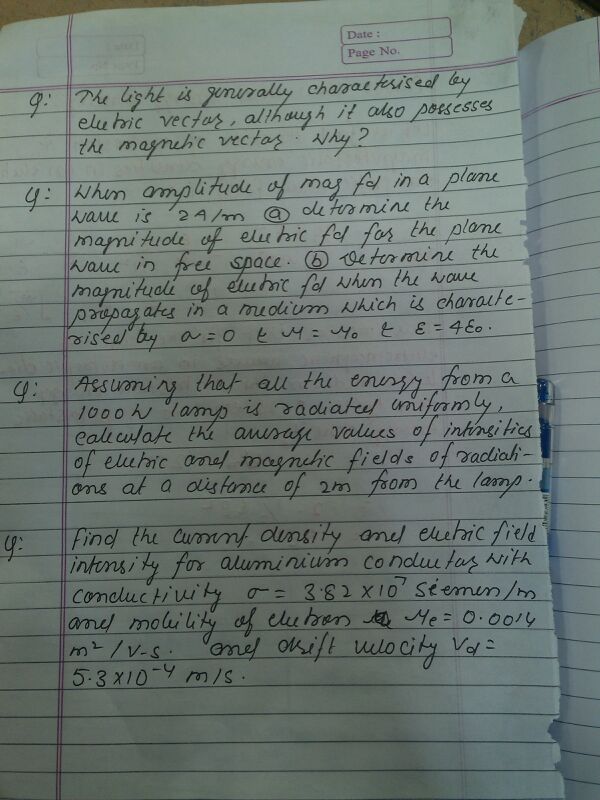 Date :
Page No.
Q: The light is generally characterised by
electric vector, although it also possesses
the magnetic vector. Why?
Q: When amplitude of mag fd in a plane
wave is 2A/m ⓐ determine the
magnitude of electric fd for the plane
wave in free space. ⓑ Determine the
magnitude of electric fd when the wave
propagates in a medium which is characte-
rised by σ = 0 & μ = μ₀ & ε = 4ε₀.
Q: Assuming that all the energy from a
1000 W lamp is radiated uniformly,
calculate the average values of intensities
of electric and magnetic fields of radiati-
ons at a distance of 2m from the lamp.
Q: Find the current density and electric field
intensity for aluminium conductor with
conductivity σ = 3.82 × 10⁷ Siemen/m
and mobility of electron μe = 0.0014
m²/V-s. and drift velocity Vd =
5.3 × 10⁻⁴ m/s.